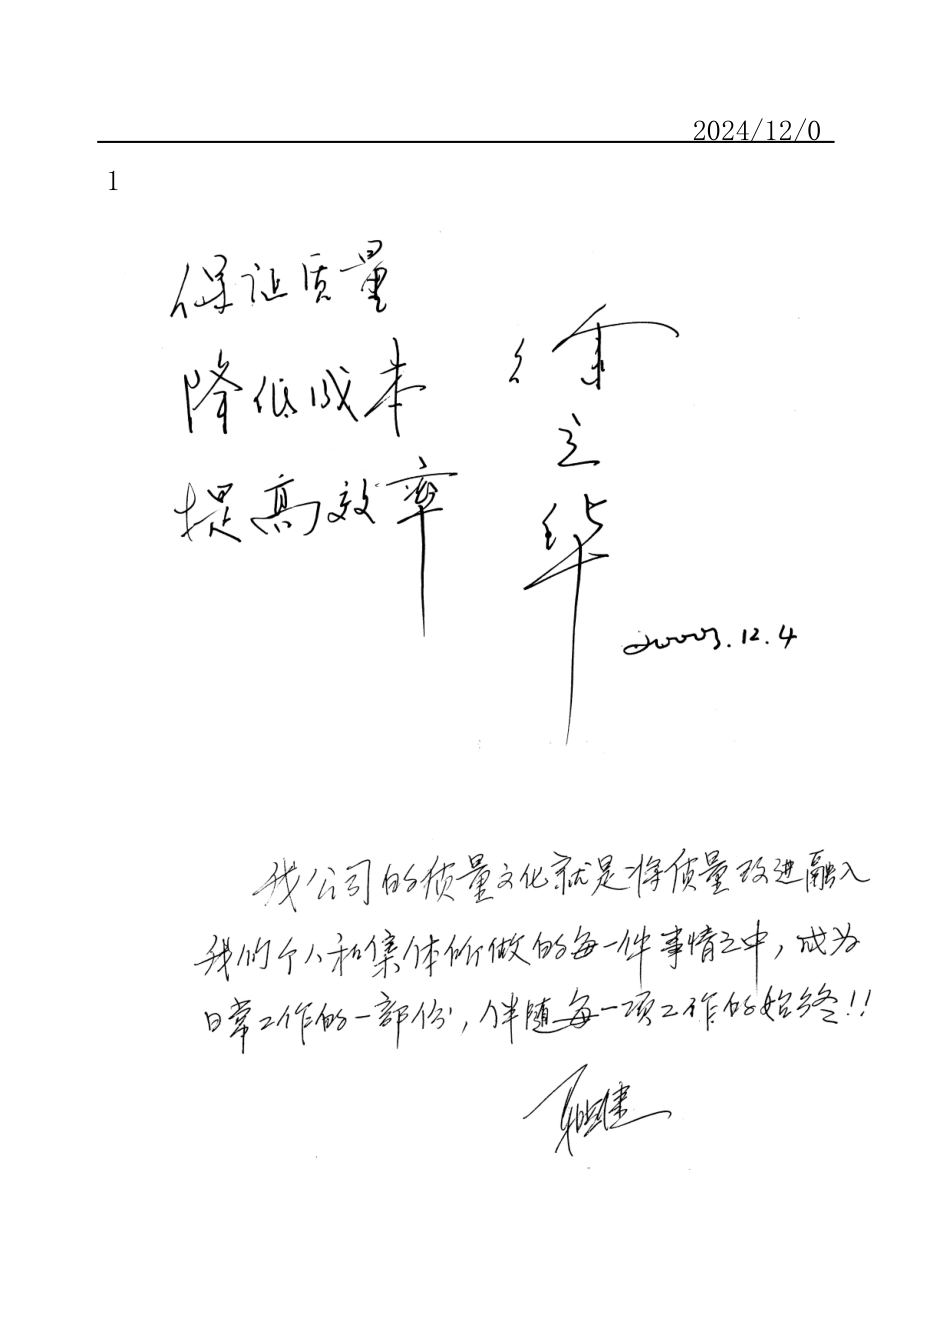 2024/12/0
1
保证质量
降低成本
提高效率
徐立华
2003.12.4
我公司的质量文化就是将质量改进融入
我们个人和集体所做的每一件事情之中，成为
日常工作的一部份，伴随每一项工作的始终!!